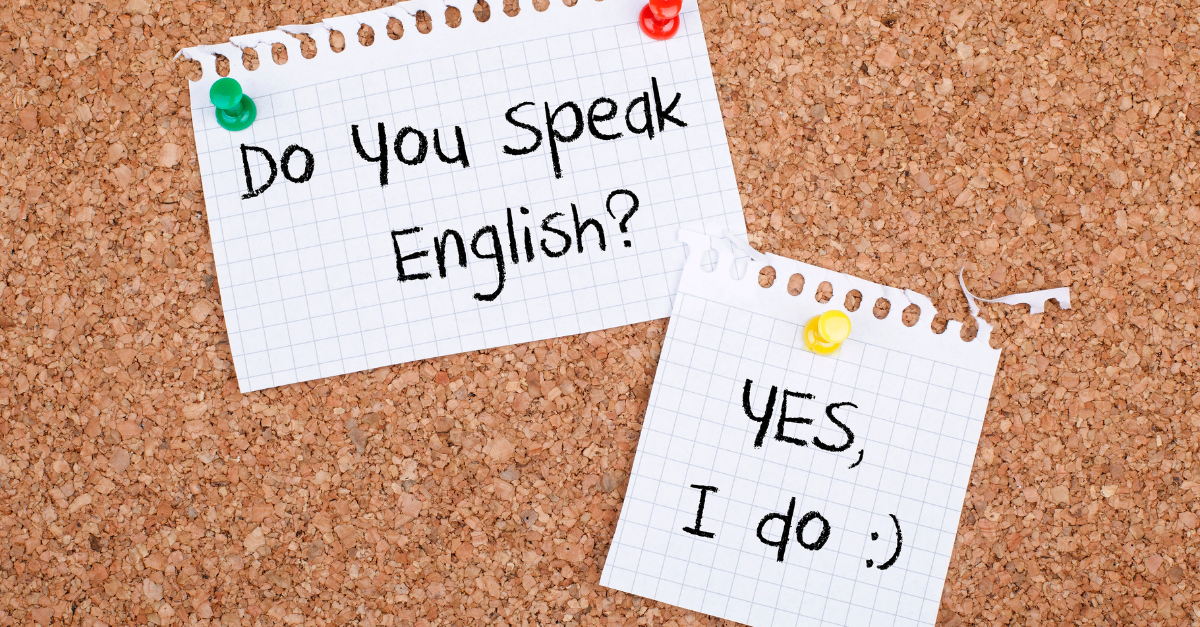 Do you Speak
English?
YES,
I do :)